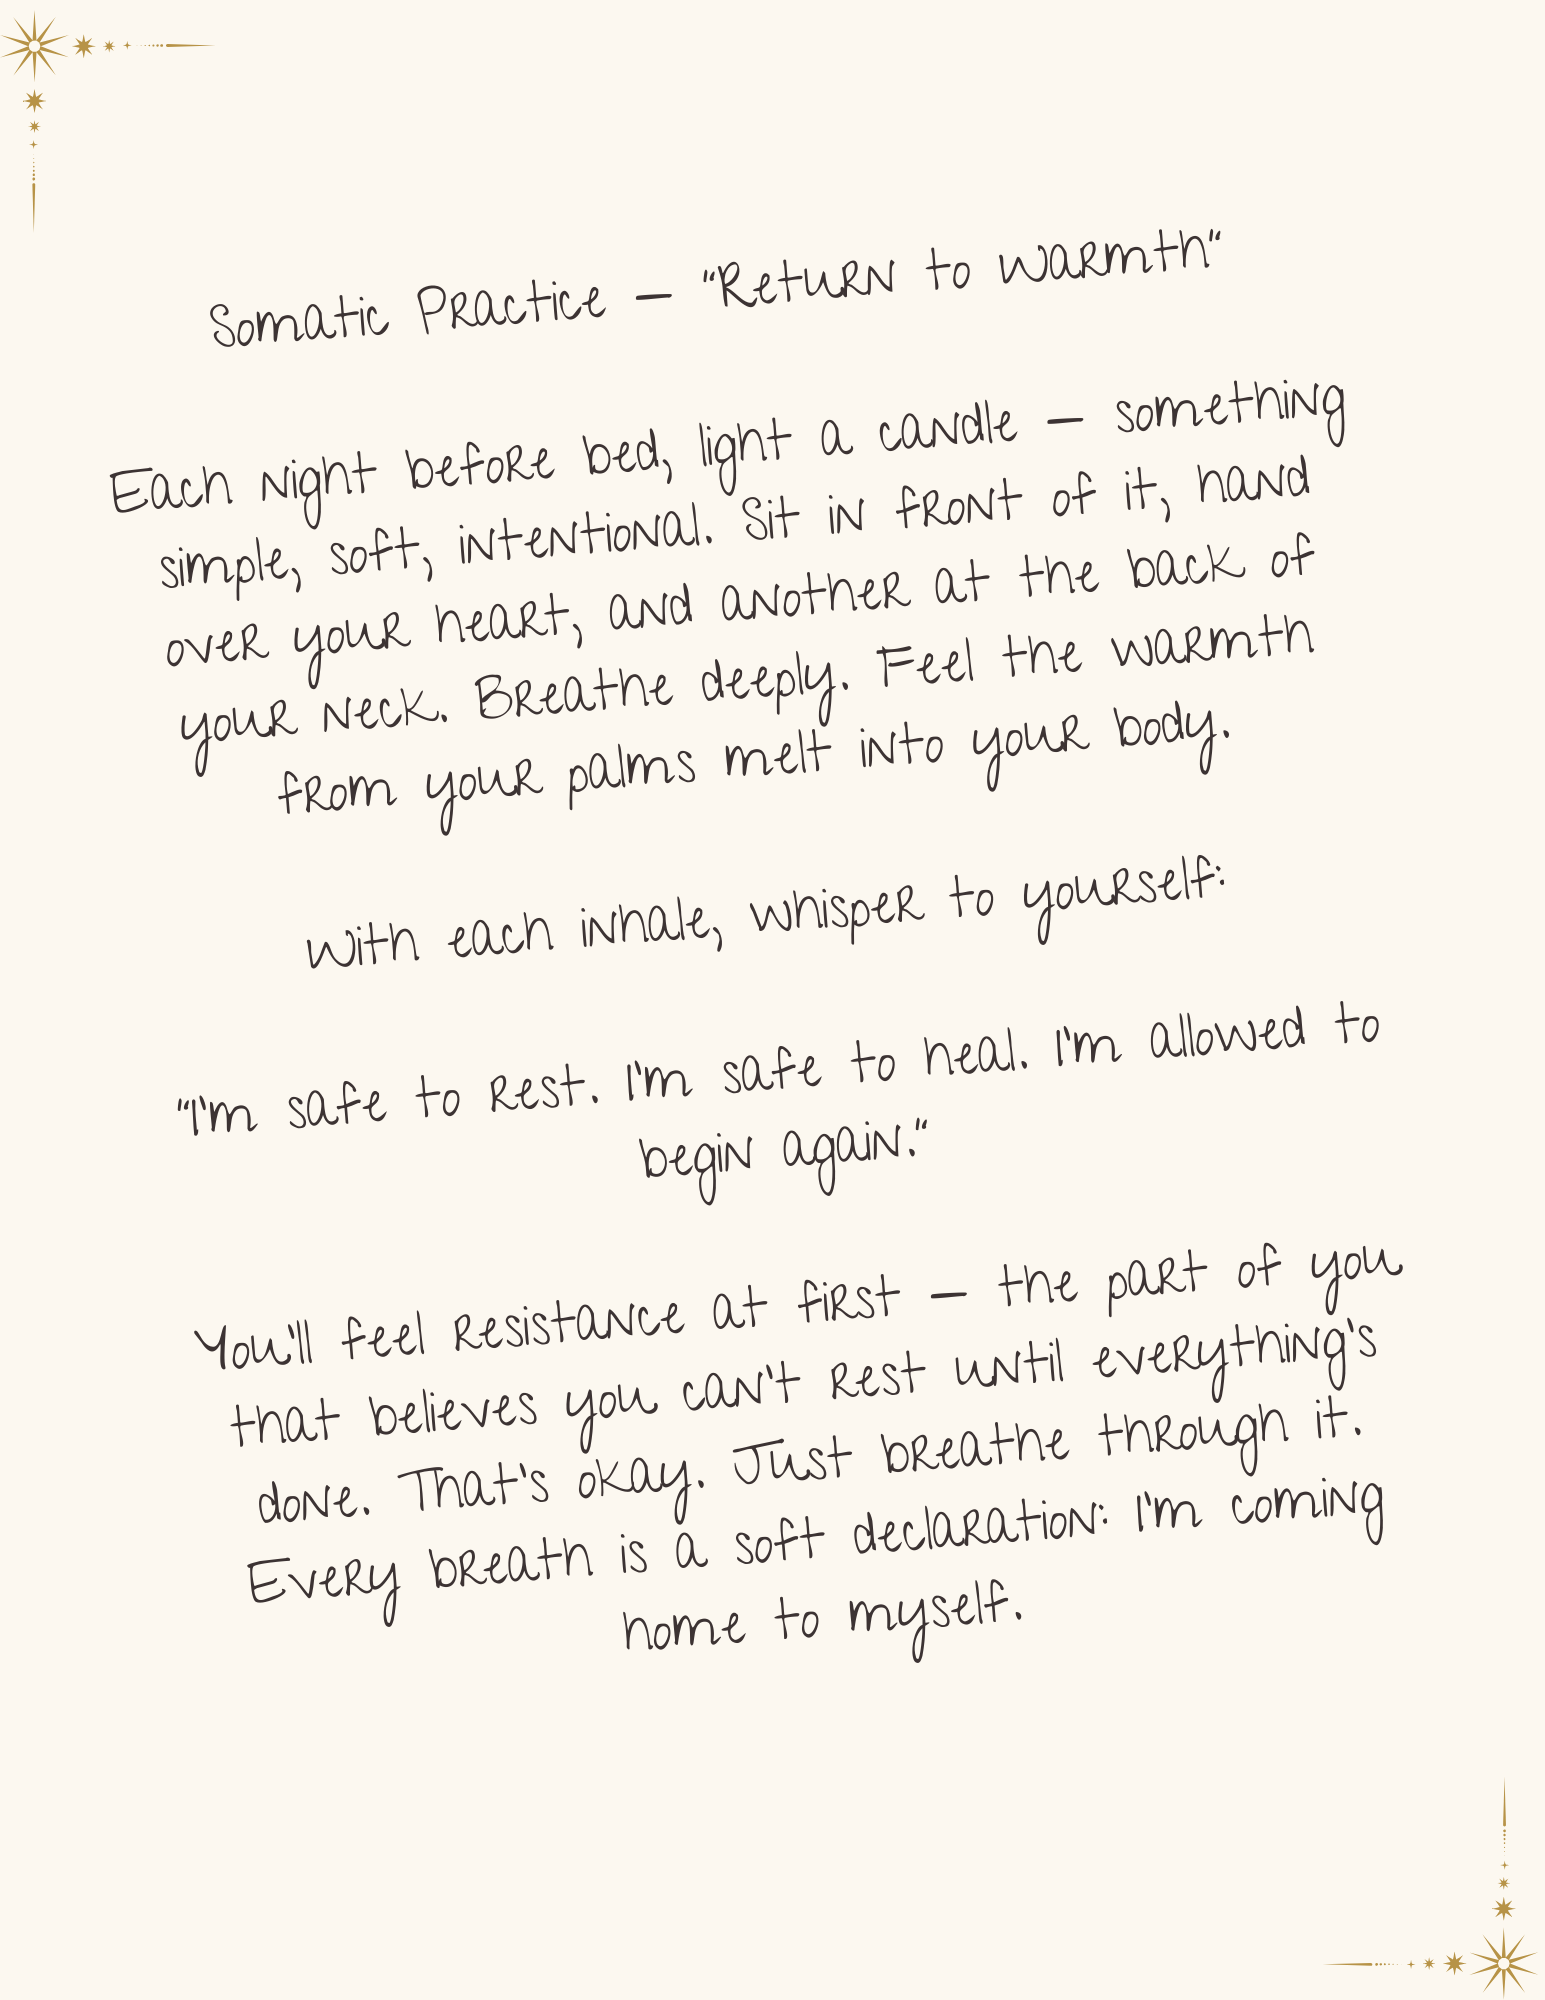 Somatic Practice — "Return to Warmth"
Each night before bed, light a candle — something
simple, soft, intentional. Sit in front of it, hand
over your heart, and another at the back of
your neck. Breathe deeply. Feel the warmth
from your palms melt into your body.
With each inhale, whisper to yourself:
"I'm safe to rest. I'm safe to heal. I'm allowed to
begin again."
You'll feel resistance at first — the part of you
that believes you can't rest until everything's
done. That's okay. Just breathe through it.
Every breath is a soft declaration: I'm coming
home to myself.